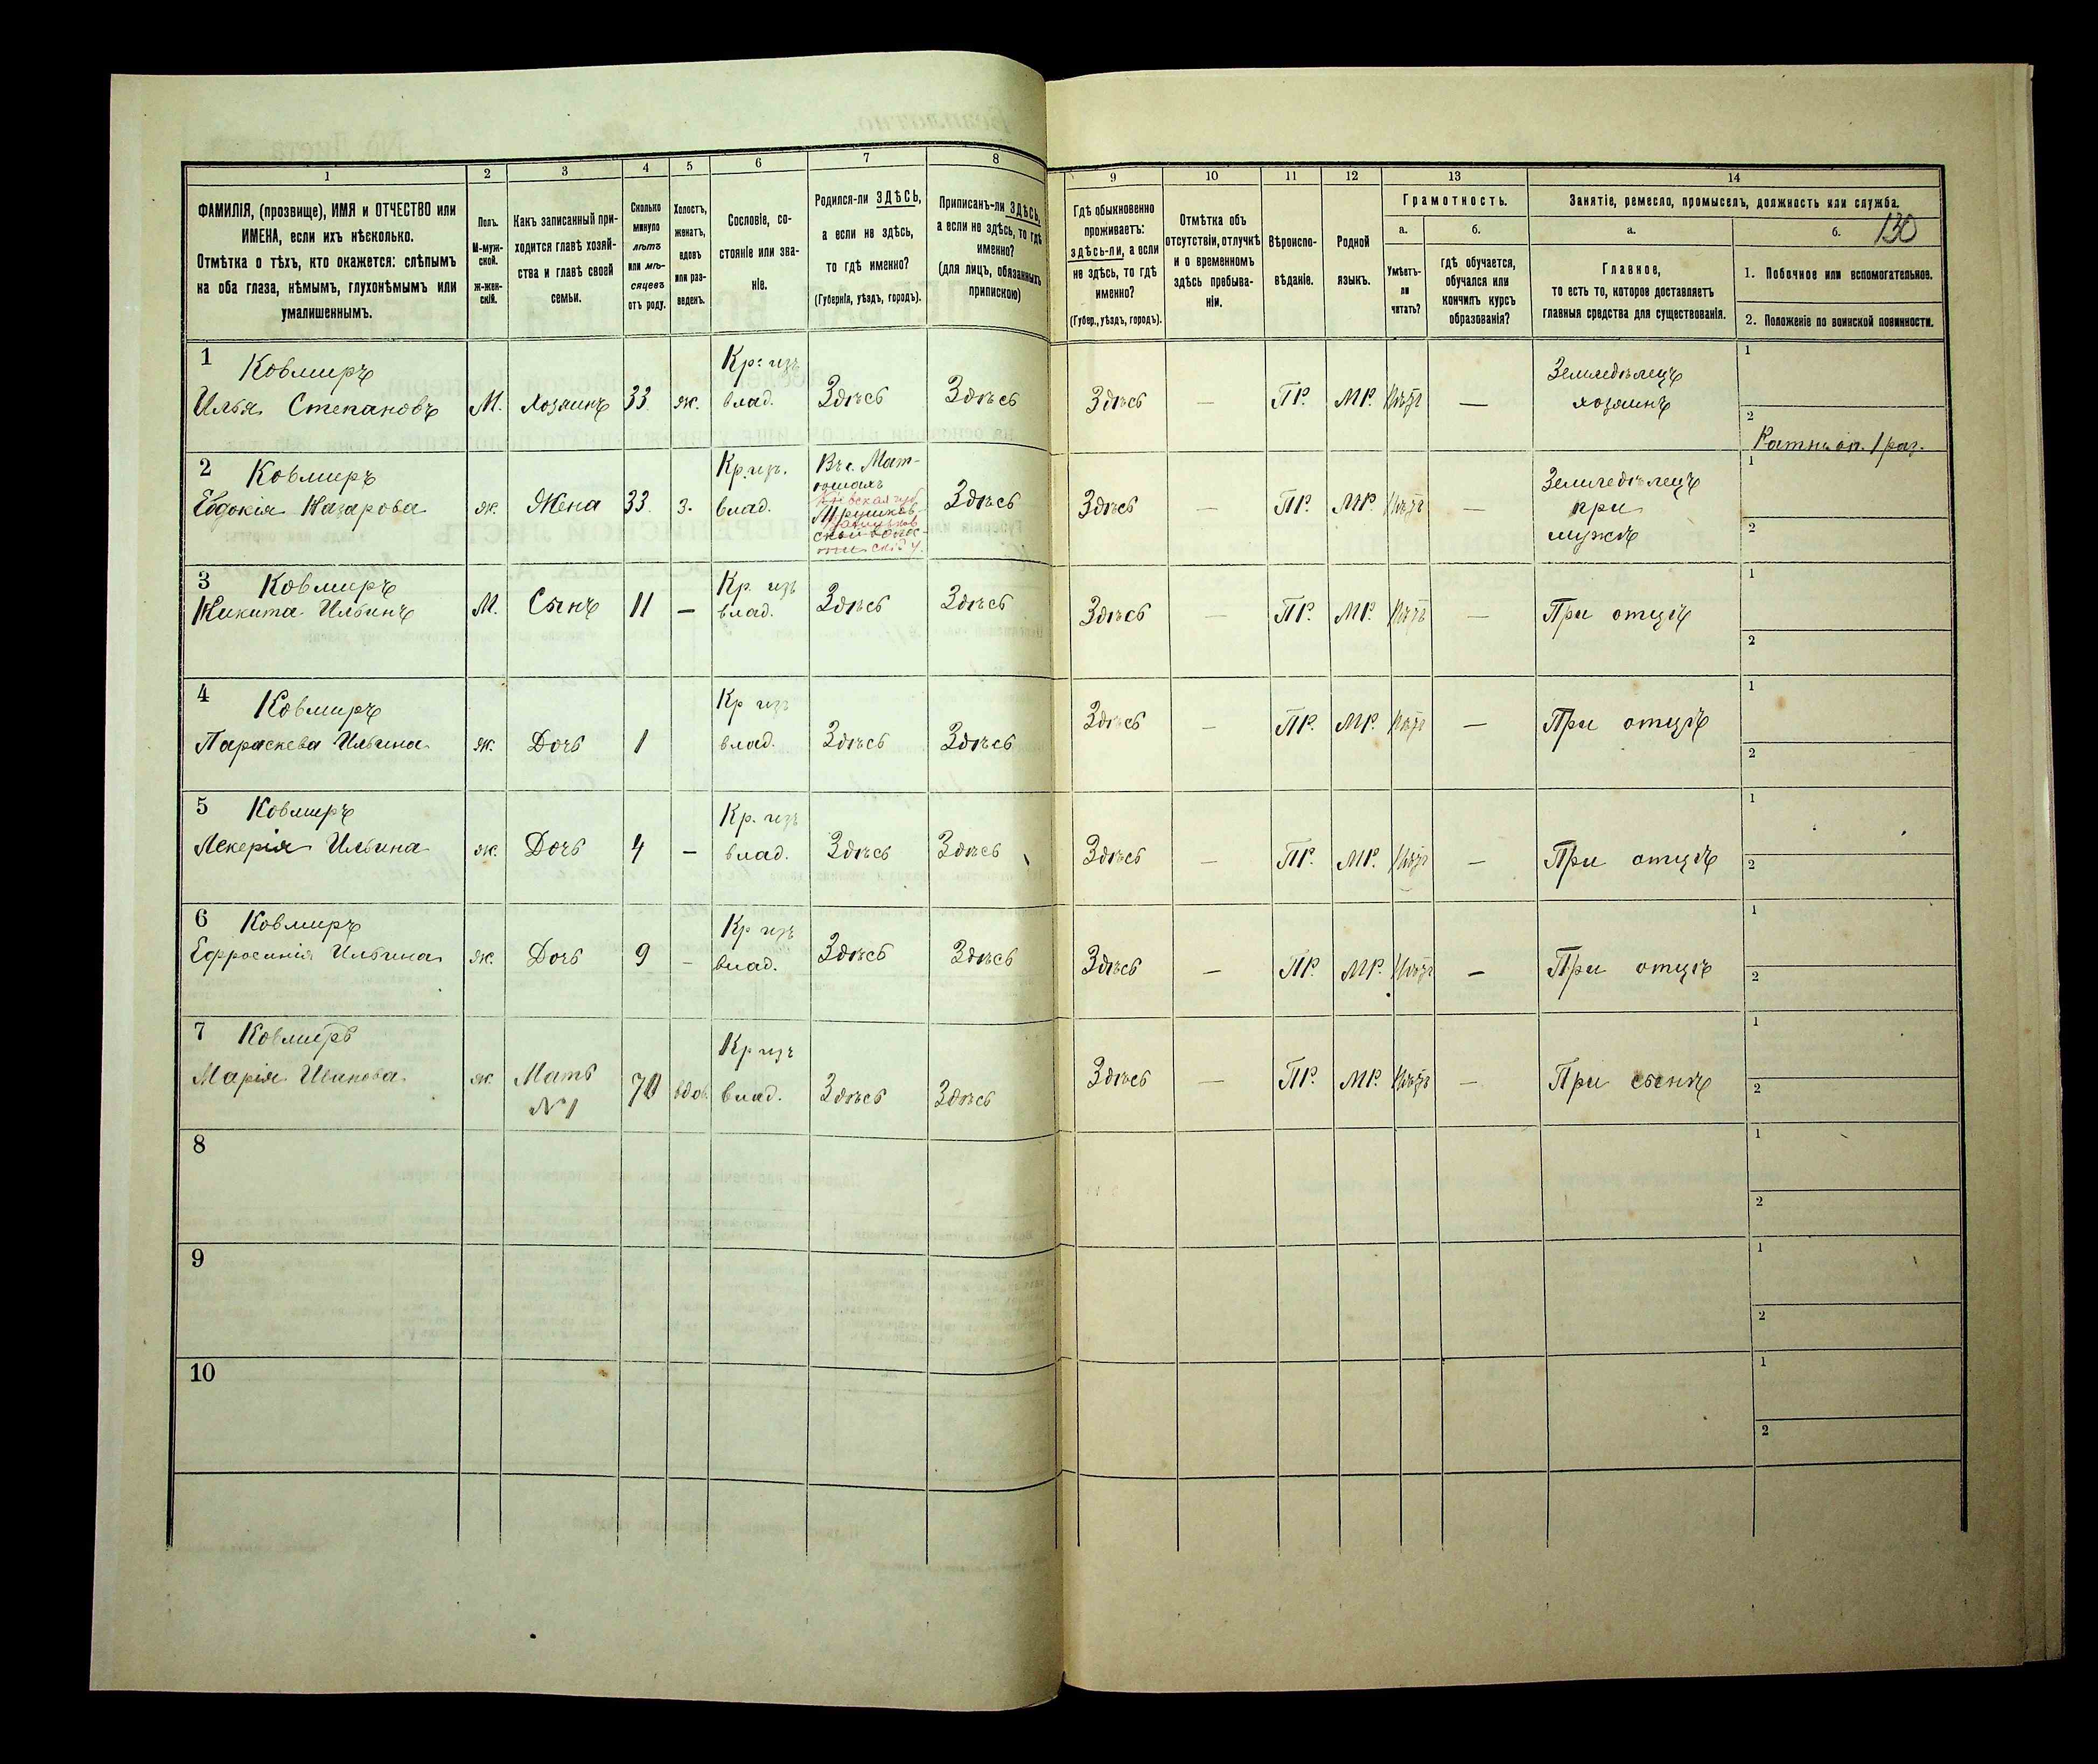 1
2
3
4
5
6
7
8
9
10
11
12
13
14
ФАМИЛІЯ, (прозвище), ИМЯ и ОТЧЕСТВО или
ИМЕНА, если ихъ нѣсколько.
Отмѣтка о тѣхъ, кто окажется: слѣпымъ
на оба глаза, нѣмымъ, глухонѣмымъ или
умалишеннымъ.
Полъ.
М-муж-
ской.
Ж-жен-
скій.
Какъ записанный при-
ходится главѣ хозяй-
ства и главѣ своей
семьи.
Сколько
минуло
лѣтъ
или мѣ-
сяцевъ
отъ роду.
Холостъ,
женатъ,
вдовъ
или раз-
веденъ.
Сословіе, со-
стояніе или зва-
ніе.
Родился-ли ЗДѢСЬ,
а если не здѣсь,
то гдѣ именно?
(Губернія, уѣздъ, городъ).
Приписанъ-ли ЗДѢСЬ,
а если не здѣсь, то гдѣ
именно?
(для лицъ, обязанныхъ
припискою)
Гдѣ обыкновенно
проживаетъ:
здѣсь-ли, а если
не здѣсь, то гдѣ
именно?
(Губер., уѣздъ, городъ).
Отмѣтка объ
отсутствіи, отлучкѣ
и о временномъ
здѣсь пребыва-
ніи.
Вѣроиспо-
вѣданіе.
Родной
языкъ.
Грамотность.
а.
Умѣетъ-
ли
читать?
б.
гдѣ обучается,
обучался или
кончилъ курсъ
образованія?
Занятіе, ремесло, промыселъ, должность или служба.
130
а.
Главное,
то есть то, которое доставляетъ
главныя средства для существованія.
б.
1. Побочное или вспомогательное.
2. Положеніе по воинской повинности.
1 Ковмиръ
Илья Степановъ М. хозяинъ 33 ж. Кр: изъ влад. Здѣсь Здѣсь Здѣсь — ПР. МР. Нѣтъ — Земледѣлецъ хозяинъ 1
2 Ратн. оп. 1 раз.
2 Ковмиръ
Евдокія Назарова ж. Жена 33. з. Кр. изъ. влад. Въ с. Мат-
юшахъ
Кіевская губ.
Здѣсь Здѣсь — ПР. МР. Нѣтъ — Земледѣлецъ при мужѣ 1
2
3 Ковмиръ
Никита Ильинъ М. Сынъ 11 — Кр. изъ влад. Здѣсь Здѣсь Здѣсь — ПР. МР. Нѣтъ — При отцѣ 1
2
4 Ковмиръ
Параскева Ильина ж. Дочь 1 Кр изъ влад. Здѣсь Здѣсь Здѣсь — ПР. МР. Нѣтъ — При отцѣ 1
2
5 Ковмиръ
Лекерія Ильина ж. Дочь 4 — Кр. изъ влад. Здѣсь Здѣсь Здѣсь — ПР. МР. Нѣтъ — При отцѣ 1
2
6 Ковмиръ
Ефросинія Ильина ж. Дочь 9 — Кр изъ влад. Здѣсь Здѣсь Здѣсь — ПР. МР. Нѣтъ — При отцѣ 1
2
7 Ковмиръ
Марія Иванова ж. Мать N 1 70 вдов. Кр изъ влад. Здѣсь Здѣсь Здѣсь — ПР. МР. Нѣтъ — При сынѣ 1
2
8 1
2
9 1
2
10 1
2